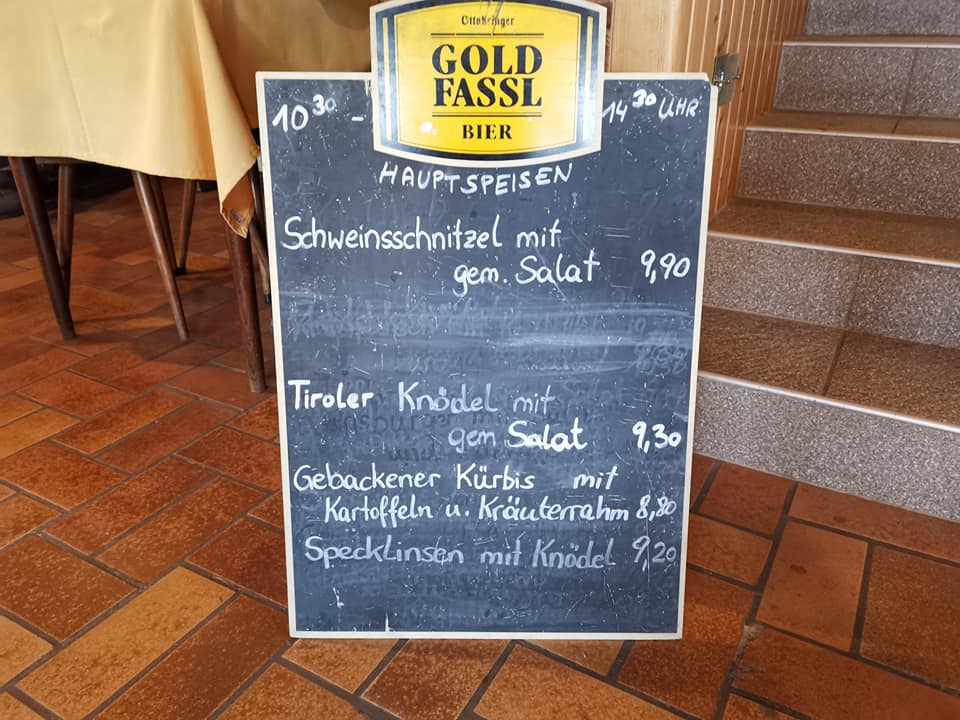 Ottakringer
GOLD
FASSL
BIER
10³⁰ - 14³⁰ UHR
HAUPTSPEISEN
Schweinsschnitzel mit
gem. Salat 9,90
Tiroler Knödel mit
gem Salat 9,30
Gebackener Kürbis mit
Kartoffeln u. Kräuterrahm 8,80
Specklinsen mit Knödel 9,20